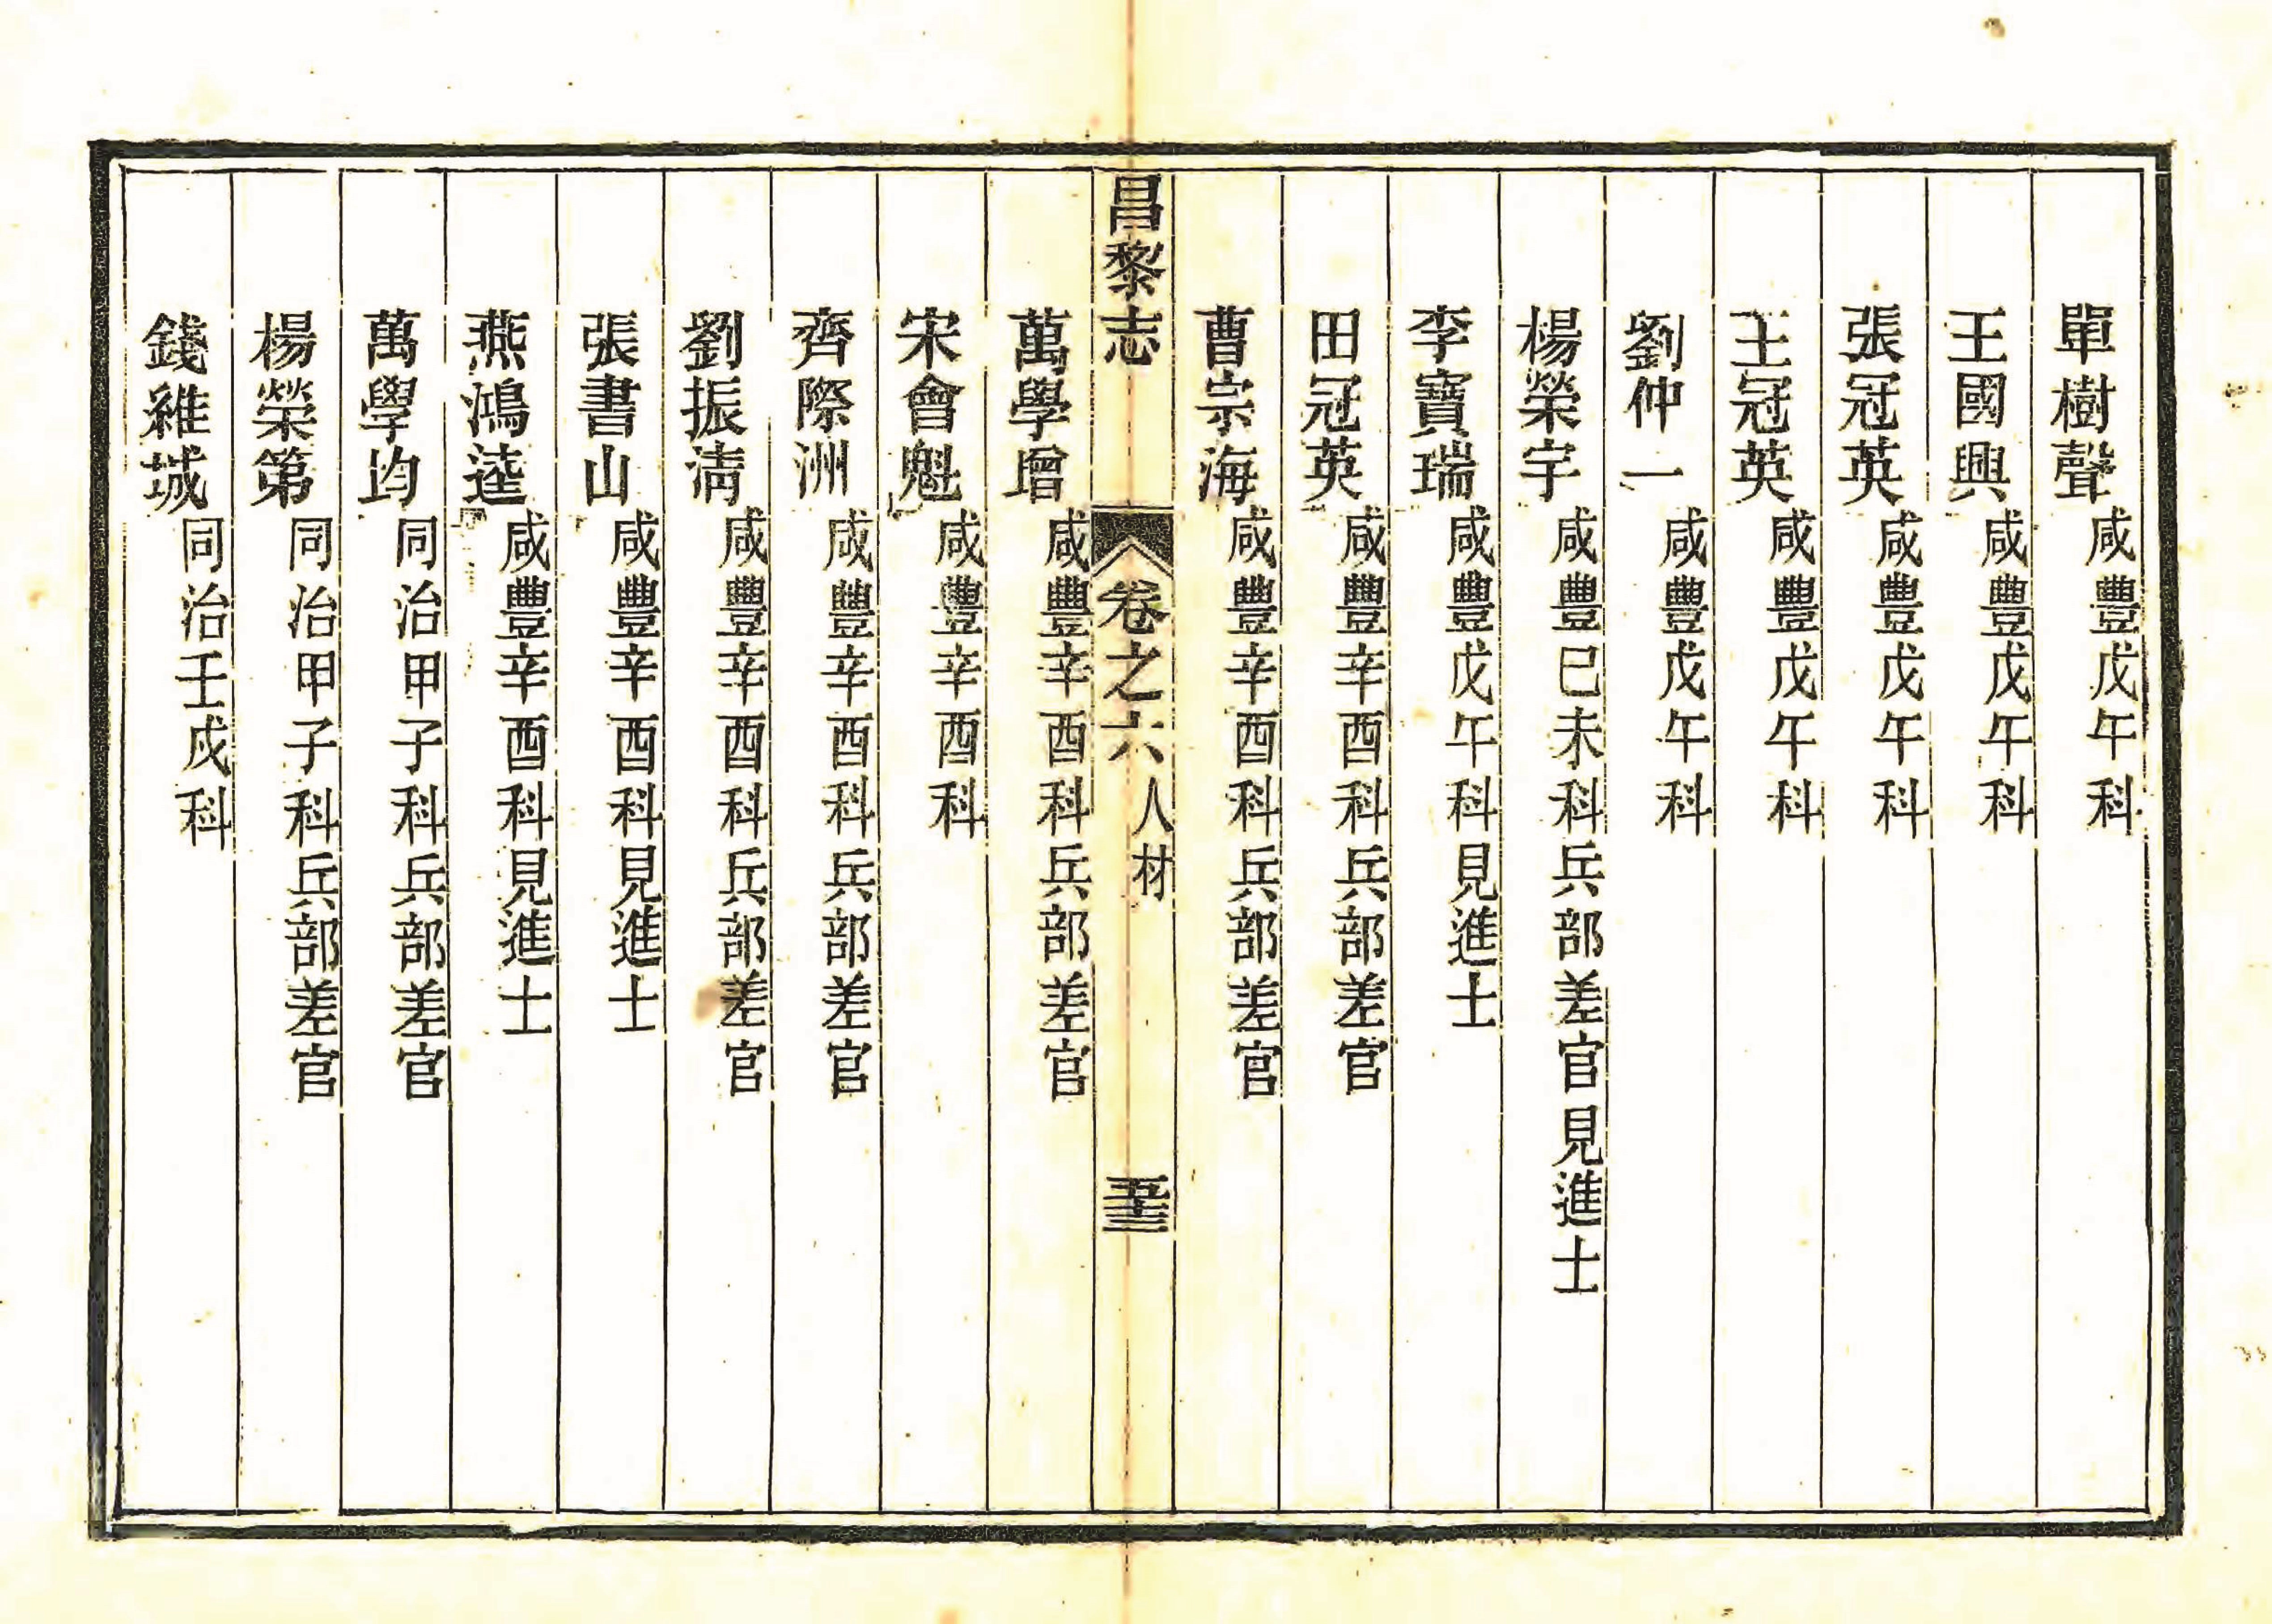 單樹聲咸豐戊午科
王國興咸豐戊午科
張冠英咸豐戊午科
王冠英咸豐戊午科
劉仲一咸豐戊午科
楊榮宇咸豐已未科兵部差官見進士
李寶瑞咸豐戊午科見進士
田冠英咸豐辛酉科兵部差官
曹宗海咸豐辛酉科兵部差官
昌黎志 卷之六 人材 五十三
萬學增咸豐辛酉科兵部差官
宋會魁咸豐辛酉科
齊際洲咸豐辛酉科兵部差官
劉振淸咸豐辛酉科兵部差官
張書山咸豐辛酉科見進士
燕鴻逵咸豐辛酉科見進士
萬學均同治甲子科兵部差官
楊榮第同治甲子科兵部差官
錢維城同治壬戌科